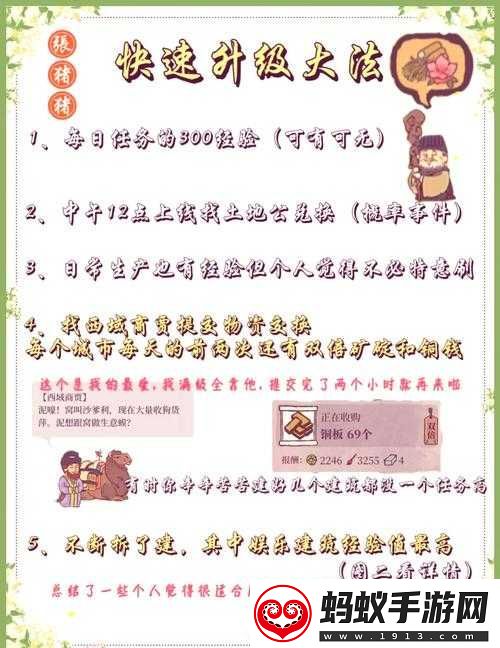 張豬豬
快速升级大法
1、每日任务的300经验（可有可无）
2、中午12点上线找土地公兑换（概率事件）
3、日常生产也有经验但个人觉得不必特意刷
4、找西域商贾提交物资交换
每个城市每天的前两次还有双倍矿碇和铜钱
这个是我的最爱，我满级全靠他，提交完了两个小时就再来啦
【西域商贾】
泥嚎！窝叫沙爹利，现在大量收购货
萍。泥想跟窝做生意嫫？
正在收购
铜板 69个
双倍
报酬： 2246 3255 4
有时你辛辛苦苦建好几个建筑都没一个任务高
5、不断拆了建，其中娱乐建筑经验值最高
（图二看详情）
总结了一些个人觉得很适合
蚂蚁手游网
www.1913.com